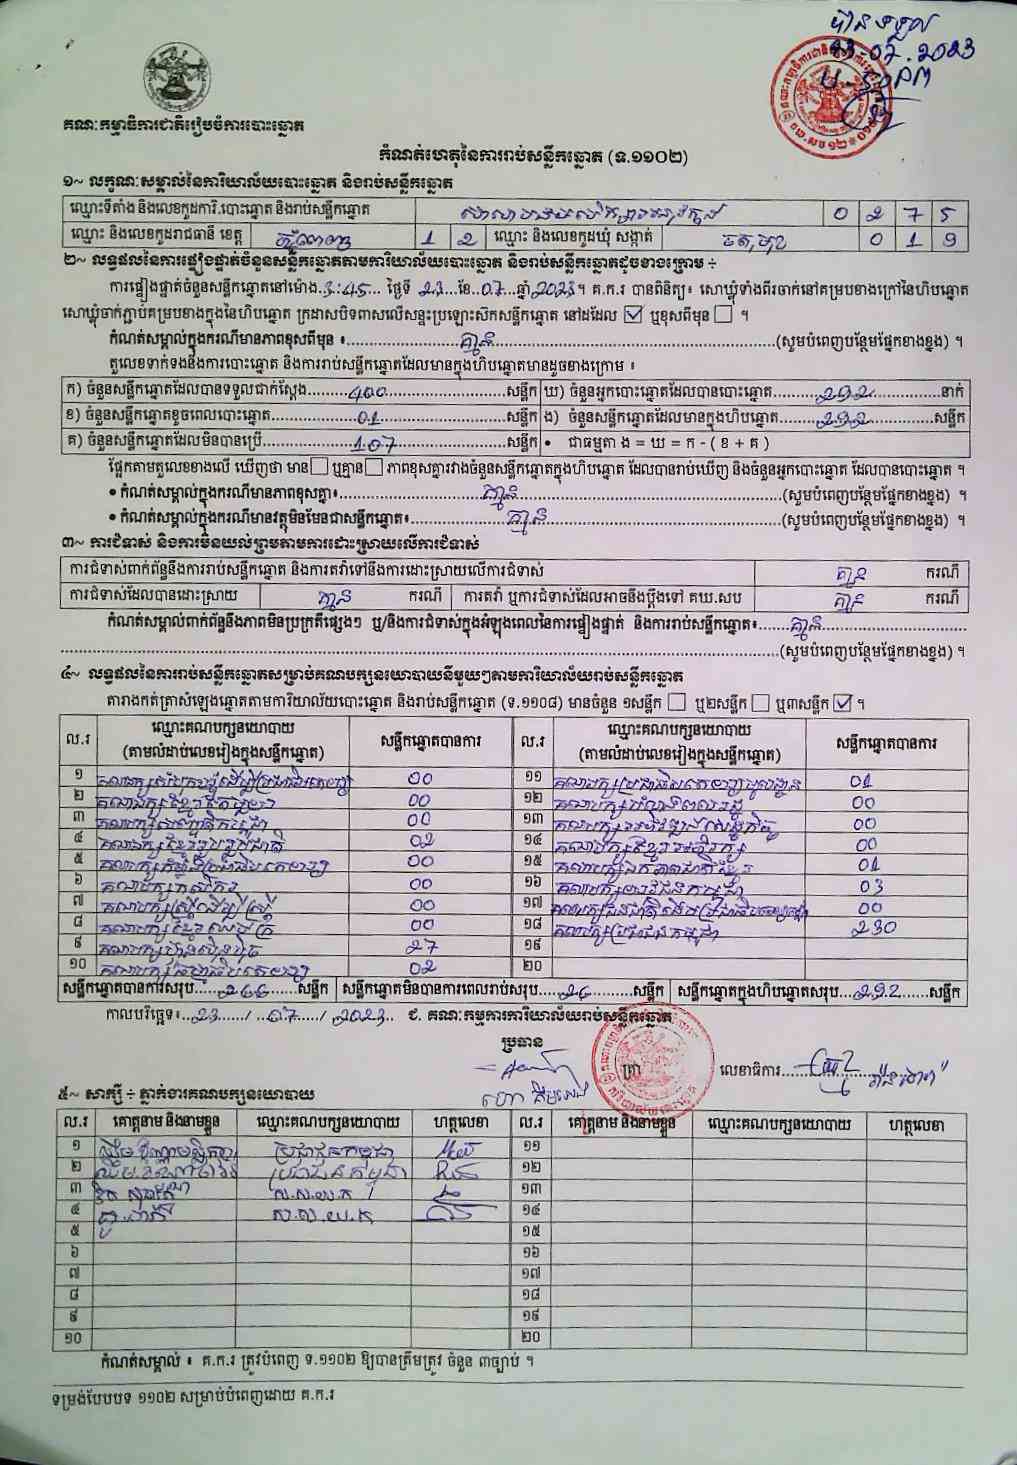 បានទទួល
23.07.2023
គណៈកម្មាធិការជាតិរៀបចំការបោះឆ្នោត
កំណត់ហេតុនៃការរាប់សន្លឹកឆ្នោត (ទ.១១០២)
១~ លក្ខណៈសម្គាល់នៃការិយាល័យបោះឆ្នោត និងរាប់សន្លឹកឆ្នោត
ឈ្មោះទីតាំង និងលេខកូដការិ.បោះឆ្នោត និងរាប់សន្លឹកឆ្នោត 0 2 7 5
ឈ្មោះ និងលេខកូដរាជធានី ខេត្ត ភ្នំពេញ 1 2 ឈ្មោះ និងលេខកូដឃុំ សង្កាត់ ចតុមុខ 0 1 9
២~ លទ្ធផលនៃការផ្ទៀងផ្ទាត់ចំនួនសន្លឹកឆ្នោតតាមការិយាល័យបោះឆ្នោត និងរាប់សន្លឹកឆ្នោតដូចខាងក្រោម ÷
ការផ្ទៀងផ្ទាត់ចំនួនសន្លឹកឆ្នោតនៅម៉ោង 3:45 ថ្ងៃទី 23 ខែ 07 ឆ្នាំ 2023 ។ គ.ក.រ បានពិនិត្យ៖ សោឃ្លុំទាំងពីរចាក់នៅគម្របខាងក្រៅនៃហិបឆ្នោត
សោឃ្លុំចាក់ភ្ជាប់គម្របខាងក្នុងនៃហិបឆ្នោត ក្រដាសបិទពាសលើសន្ទះប្រឡោះសិកសន្លឹកឆ្នោត នៅដដែល ☑ ឬខុសពីមុន ☐ ។
កំណត់សម្គាល់ក្នុងករណីមានភាពខុសពីមុន ៖ គ្មាន (សូមបំពេញបន្ថែមផ្នែកខាងខ្នង) ។
តួលេខទាក់ទងនឹងការបោះឆ្នោត និងការរាប់សន្លឹកឆ្នោតដែលមានក្នុងហិបឆ្នោតមានដូចខាងក្រោម ៖
ក) ចំនួនសន្លឹកឆ្នោតដែលបានទទួលជាក់ស្តែង 400 សន្លឹក ឃ) ចំនួនអ្នកបោះឆ្នោតដែលបានបោះឆ្នោត 292 នាក់
ខ) ចំនួនសន្លឹកឆ្នោតខូចពេលបោះឆ្នោត 01 សន្លឹក ង) ចំនួនសន្លឹកឆ្នោតដែលមានក្នុងហិបឆ្នោត 292 សន្លឹក
គ) ចំនួនសន្លឹកឆ្នោតដែលមិនបានប្រើ 107 សន្លឹក • ជាធម្មតា ង = ឃ = ក - ( ខ + គ )
ផ្អែកតាមតួលេខខាងលើ ឃើញថា មាន ☐ ឬគ្មាន ☐ ភាពខុសគ្នារវាងចំនួនសន្លឹកឆ្នោតក្នុងហិបឆ្នោត ដែលបានរាប់ឃើញ និងចំនួនអ្នកបោះឆ្នោត ដែលបានបោះឆ្នោត ។
• កំណត់សម្គាល់ក្នុងករណីមានភាពខុសគ្នា៖ គ្មាន (សូមបំពេញបន្ថែមផ្នែកខាងខ្នង) ។
• កំណត់សម្គាល់ក្នុងករណីមានវត្ថុមិនមែនជាសន្លឹកឆ្នោត៖ គ្មាន (សូមបំពេញបន្ថែមផ្នែកខាងខ្នង) ។
៣~ ការជំទាស់ និងការមិនយល់ព្រមតាមការដោះស្រាយលើការជំទាស់
ការជំទាស់ពាក់ព័ន្ធនឹងការរាប់សន្លឹកឆ្នោត និងការតវ៉ាទៅនឹងការដោះស្រាយលើការជំទាស់ គ្មាន ករណី
ការជំទាស់ដែលបានដោះស្រាយ គ្មាន ករណី ការតវ៉ា ឬការជំទាស់ដែលអាចនឹងប្តឹងទៅ គឃ.សប គ្មាន ករណី
កំណត់សម្គាល់ពាក់ព័ន្ធនឹងភាពមិនប្រក្រតីផ្សេងៗ ឬ/និងការជំទាស់ក្នុងអំឡុងពេលនៃការផ្ទៀងផ្ទាត់ និងការរាប់សន្លឹកឆ្នោត៖ គ្មាន
(សូមបំពេញបន្ថែមផ្នែកខាងខ្នង) ។
៤~ លទ្ធផលនៃការរាប់សន្លឹកឆ្នោតសម្រាប់គណបក្សនយោបាយនីមួយៗតាមការិយាល័យរាប់សន្លឹកឆ្នោត
តារាងកត់ត្រាសំឡេងឆ្នោតតាមការិយាល័យបោះឆ្នោត និងរាប់សន្លឹកឆ្នោត (ទ.១១០៨) មានចំនួន ១សន្លឹក ☐ ឬ២សន្លឹក ☐ ឬ៣សន្លឹក ☑ ។
ល.រ ឈ្មោះគណបក្សនយោបាយ (តាមលំដាប់លេខរៀងក្នុងសន្លឹកឆ្នោត) សន្លឹកឆ្នោតបានការ ល.រ ឈ្មោះគណបក្សនយោបាយ (តាមលំដាប់លេខរៀងក្នុងសន្លឹកឆ្នោត) សន្លឹកឆ្នោតបានការ
១ 00 ១១ គណបក្សប្រជាធិបតេយ្យមូលដ្ឋាន 01
២ 00 ១២ គណបក្ស 00
៣ 00 ១៣ គណបក្ស 00
៤ គណបក្សខ្មែររួបរួមជាតិ 02 ១៤ គណបក្សខ្មែរអភិរក្ស 00
៥ គណបក្ស 00 ១៥ គណបក្សឯកភាពជាតិខ្មែរ 01
៦ គណបក្សកសិករ 00 ១៦ គណបក្សយុវជនកម្ពុជា 03
៧ គណបក្សស្ត្រីដើម្បីស្ត្រី 00 ១៧ 00
៨ គណបក្សខ្មែរឈប់ក្រ 00 ១៨ គណបក្សប្រជាជនកម្ពុជា 230
៩ គណបក្សហ៊្វុនស៊ិនប៉ិច 27 ១៩
១០ គណបក្សធម្មាធិបតេយ្យ 02 ២០
សន្លឹកឆ្នោតបានការសរុប 266 សន្លឹក សន្លឹកឆ្នោតមិនបានការពេលរាប់សរុប 26 សន្លឹក សន្លឹកឆ្នោតក្នុងហិបឆ្នោតសរុប 292 សន្លឹក
កាលបរិច្ឆេទ៖ 23 / 07 / 2023 ជ. គណៈកម្មការការិយាល័យរាប់សន្លឹកឆ្នោត
ប្រធាន
ត្រា លេខាធិការ
៥~ សាក្សី ÷ ភ្នាក់ងារគណបក្សនយោបាយ
ល.រ គោត្តនាម និងនាមខ្លួន ឈ្មោះគណបក្សនយោបាយ ហត្ថលេខា ល.រ គោត្តនាម និងនាមខ្លួន ឈ្មោះគណបក្សនយោបាយ ហត្ថលេខា
១ ប្រជាជនកម្ពុជា ១១
២ ប្រជាជនកម្ពុជា ១២
៣ ស.ស.យ.ក ១៣
៤ ស.ស.យ.ក ១៤
៥ ១៥
៦ ១៦
៧ ១៧
៨ ១៨
៩ ១៩
១០ ២០
កំណត់សម្គាល់ ៖ គ.ក.រ ត្រូវបំពេញ ទ.១១០២ ឱ្យបានត្រឹមត្រូវ ចំនួន ៣ច្បាប់ ។
ទម្រង់បែបបទ ១១០២ សម្រាប់បំពេញដោយ គ.ក.រ